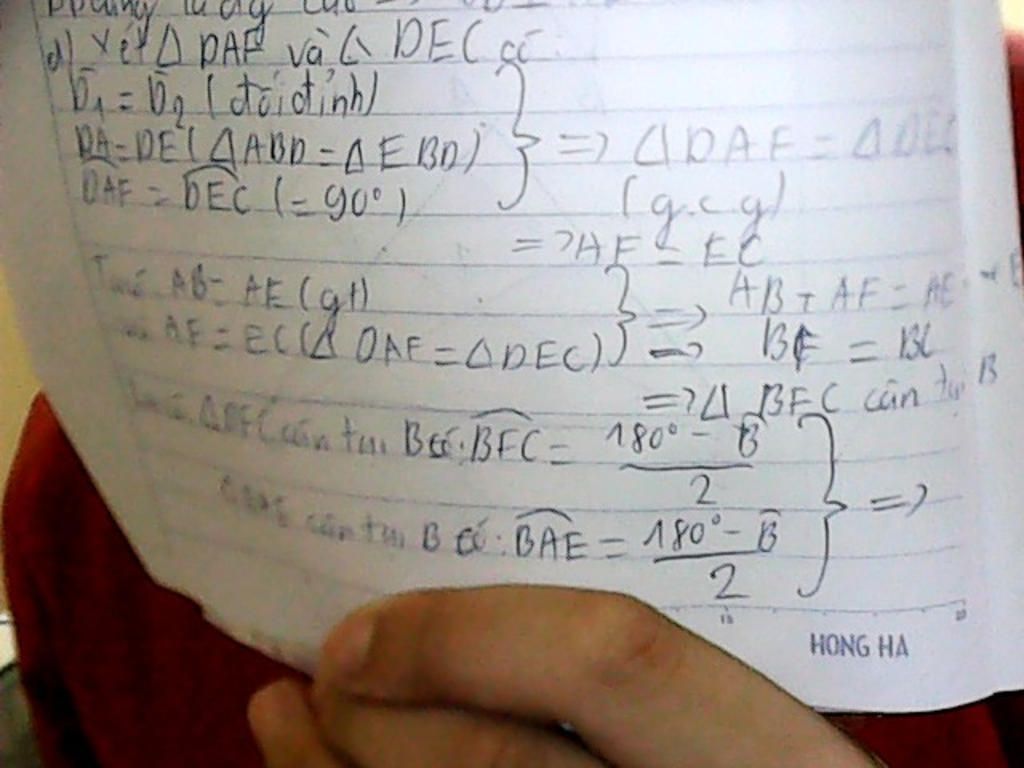 d) Xét Δ DAF và Δ DEC có:
D̂1 = D̂2 (đối đỉnh)
DA = DE (ΔABD = ΔEBD) => ΔDAF = ΔDEC
DAF = DEC (= 90°) (g.c.g)
=> AF = EC
AB = AE (gt) => AB + AF = AE
AF = EC (Δ DAF = ΔDEC) => BF = BC
=> Δ BFC cân tại B
ΔBFC cân tại B có: BFC = (180° - B̂)/2
cân tại B có: BAE = (180° - B̂)/2 =>
HONG HA